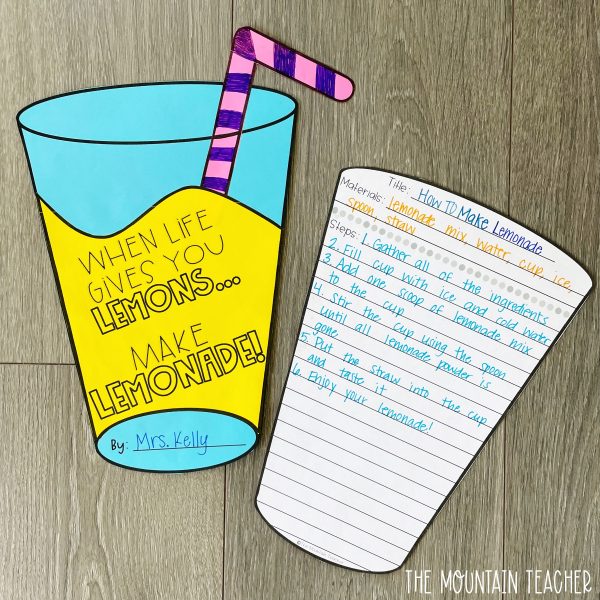 WHEN LIFE
GIVES YOU
LEMONS...
MAKE
LEMONADE!
By: Mrs. Kelly
Title: How To Make Lemonade
Materials: lemonade mix, water, cup, ice,
spoon, straw
Steps: 1. Gather all of the ingredients.
2. Fill cup with ice and cold water.
3. Add one scoop of lemonade mix
to the cup.
4. Stir the cup using the spoon
until all lemonade powder is
gone.
5. Put the straw into the cup
and taste it.
6. Enjoy your lemonade!
THE MOUNTAIN TEACHER